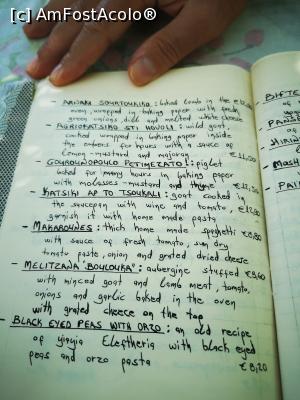 [c] AmFostAcolo®
- ARNAKI SOURTOUKIKO: baked lamb in the
oven, wrapped in baking paper with fresh
green onions, dill and melted white cheese
- AGRIOKATSIKO STI HOVOLI: wild goat,
cooked wrapped in baking paper inside
the embers for hours with a sauce of
lemon-mustard and majoran €
- GOUROUNOPOULO PETIMEZATO: piglet
baked for many hours in baking paper
with molasses-mustard and thyme €
- KATSIKI AP TO TSOUKALI: goat cooked in
the saucepan with wine and tomato, €
garnish it with home made pasta
- MAKAROUNES: thick home made spaghetti
with sauce of fresh tomato, sun dry
tomato paste, onion and grated dried cheese
- MELITZANA "BOULOUKA": aubergine stuffed €9,60
with minced goat and lamb meat, tomato,
onions and garlic baked in the oven
with grated cheese on the top
- BLACK EYED PEAS WITH ORZO: an old recipe
of yiayia Eleftheria with black eyed
peas and orzo pasta €8,20
- BIFTE
of
- 
of
- 
- MASH
- PAI